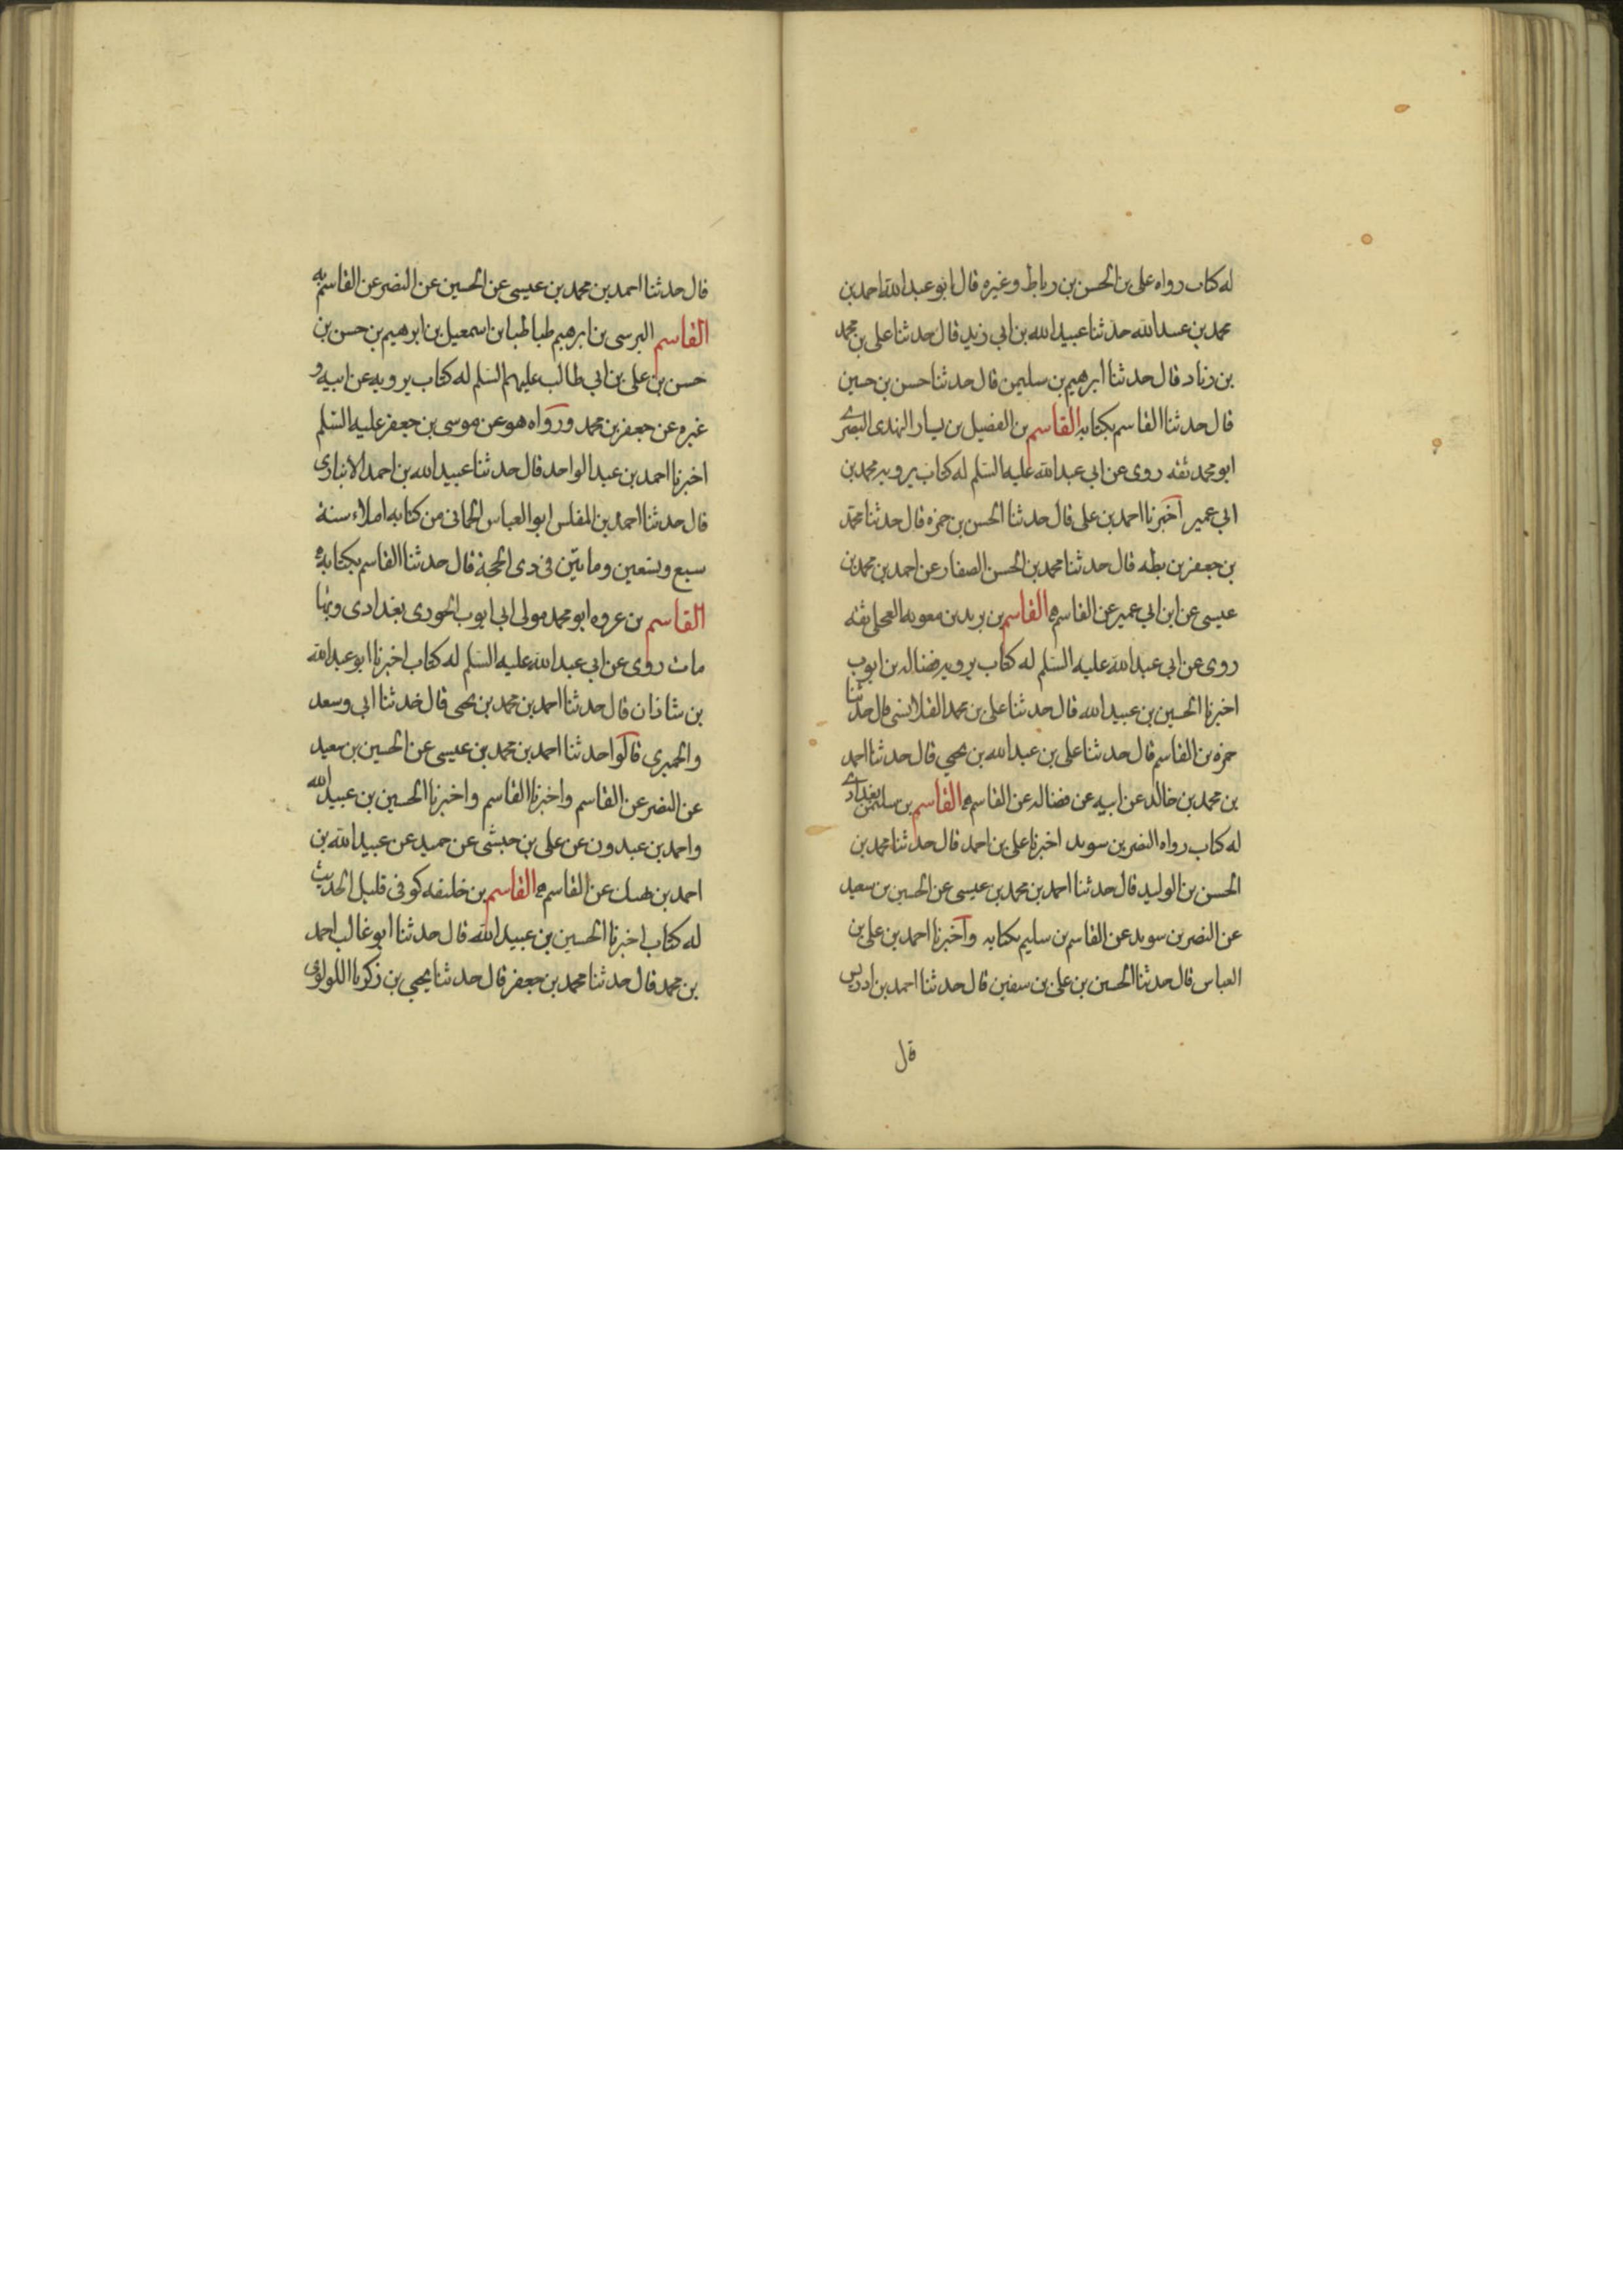 له كتاب رواه على بن الحسن بن رباط وغيره قال ابو عبد الله احمد بن
محمد بن عبيد الله حدثنا عبيد الله بن ابي زيد قال حدثنا على بن محمد
بن زناد قال حدثنا ابرهيم بن سليمن قال حدثنا حسن بن حسين
قال حدثنا القاسم بكتابه القاسم بن الفضيل بن يسار النهدى البصرى
ابو محمد ثقه روى عن ابي عبد الله عليه السلم له كتاب يرويه محمد بن
ابي عمير اخبرنا احمد بن على قال حدثنا الحسن بن حمزه قال حدثنا محمد
بن جعفر بن بطه قال حدثنا محمد بن الحسن الصفار عن احمد بن محمد بن
عيسى عن ابن ابي عمير عن القاسم به القاسم بن بريد بن معويه العجلى ثقه
روى عن ابي عبد الله عليه السلم له كتاب يرويه فضاله بن ايوب
اخبرنا الحسين بن عبيد الله قال حدثنا على بن محمد القلانسى قال حدثنا
حمزه بن القاسم قال حدثنا على بن عبد الله بن يحيى قال حدثنا احمد
بن محمد بن خالد عن ابيه عن فضاله عن القاسم به القاسم بن سليمن بغدادى
له كتاب رواه النضر بن سويد اخبرنا على بن احمد قال حدثنا محمد بن
الحسن بن الوليد قال حدثنا احمد بن محمد بن عيسى عن الحسين بن سعيد
عن النضر بن سويد عن القاسم بن سليم بكتابه واخبرنا احمد بن على بن
العباس قال حدثنا الحسين بن على بن سفين قال حدثنا احمد بن ادريس
قال
قال حدثنا احمد بن محمد بن عيسى عن الحسين عن النضر عن القاسم به
القاسم البرسى بن ابرهيم طباطبا بن اسمعيل بن ابرهيم بن حسن بن
حسن بن على بن ابي طالب عليهم السلم له كتاب يرويه عن ابيه و
غيره عن جعفر بن محمد ورواه هو عن موسى بن جعفر عليه السلم
اخبرنا احمد بن عبد الواحد قال حدثنا عبيد الله بن احمد الانبارى
قال حدثنا احمد بن المفلس ابو العباس الحمانى من كتابه املاء سنة
سبع وتسعين ومايتين فى ذى الحجة قال حدثنا القاسم بكتابه
القاسم بن عروه ابو محمد مولى ابي ايوب الخوزى بغدادى وبها
مات روى عن ابي عبد الله عليه السلم له كتاب اخبرنا ابو عبد الله
بن شاذان قال حدثنا احمد بن محمد بن يحيى قال حدثنا ابي وسعد
والحميرى قالوا حدثنا احمد بن محمد بن عيسى عن الحسين بن سعيد
عن النضر عن القاسم واخبرنا القاسم واخبرنا الحسين بن عبيد الله
واحمد بن عبدون عن على بن حبشى عن حميد عن عبيد الله بن
احمد بن نهيك عن القاسم به القاسم بن خليفه كوفى قليل الحديث
له كتاب اخبرنا الحسين بن عبيد الله قال حدثنا ابو غالب احمد
بن محمد قال حدثنا محمد بن جعفر قال حدثنا يحيى بن زكريا اللولوى